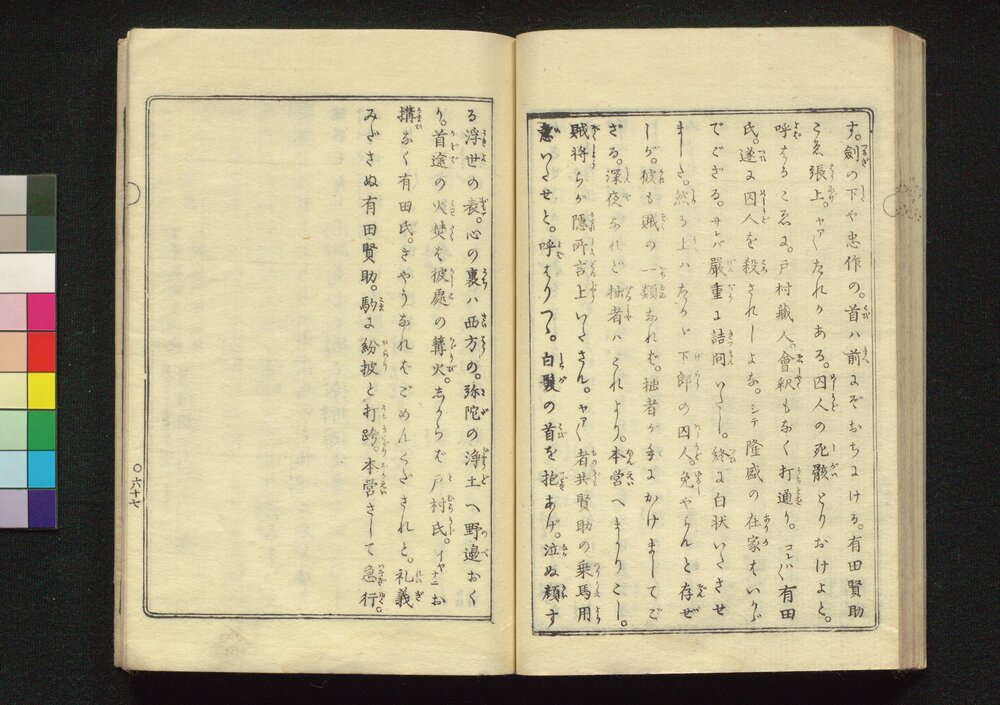 す。劍の下や忠作の。首ハ前にぞおちにける。有田賢助
こゑ張上。ヤア〱たれかある。囚人の死骸とりおけよと。
呼はるこゑに。戸村藏人。會釈もなく打通り。コレハ〱有田
氏。遂に囚人を殺されしよな。シテ隆盛の在家はいかゞ
でござる。サレバ嚴重に詰問いたし。終に白状いたさせ
ました。然る上ハたかゞ下郎の囚人。免やらんと存ぜ
しが。彼も賊の一類なれば。拙者が手にかけましてご
ざる。深夜なれど拙者ハこれより。本営へまかりこし。
賊將らが隠所言上いたさん。ヤア〱者共賢助の乗馬用
意いたせと。呼はりつゝ。白髮の首を抱あげ。泣ぬ顔す
る浮世の義。心の裏ハ西方の。弥陀の浄土へ野邉おく
り。首途の火焚は彼處の篝火。しからば戸村氏。イヤナニお
搆なく有田氏。さやうなればごめんくだされと。礼義
みださぬ有田賢助。駒に紛披と打跨。本営さして急行。
〇六十七